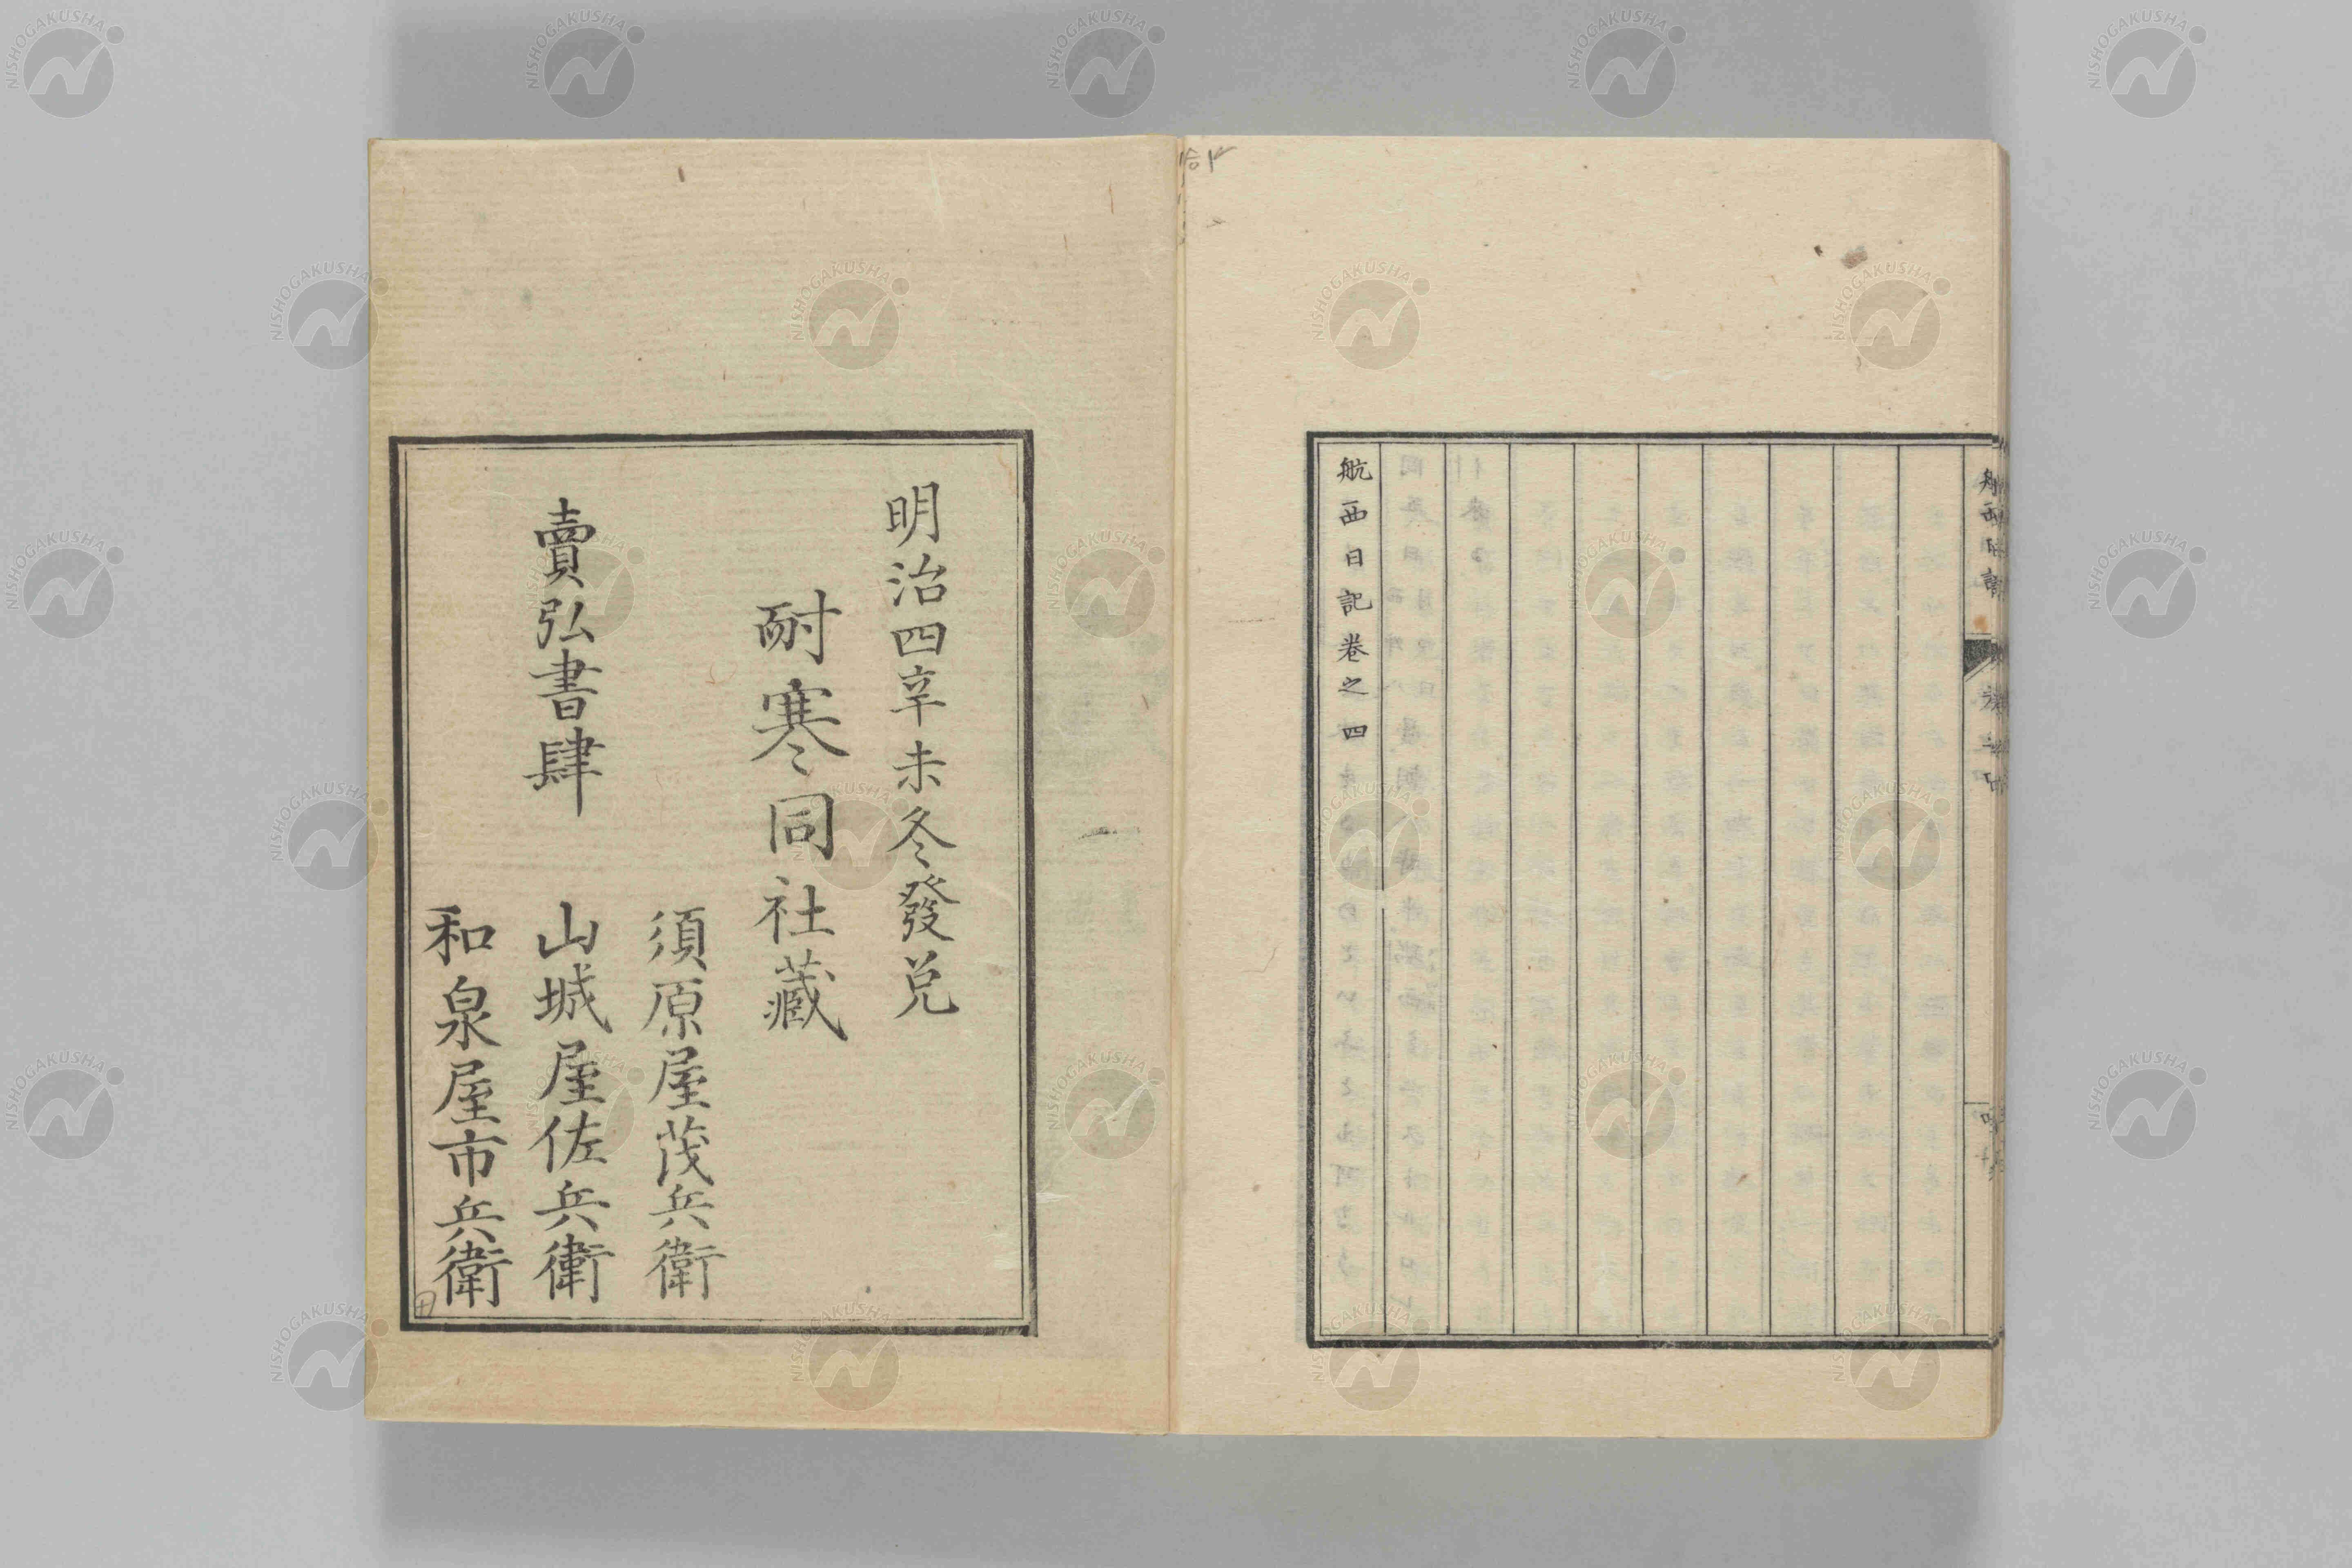 航西日記卷之四
明治四辛未冬發兌
耐寒同社藏
須原屋茂兵衛
賣弘書肆
山城屋佐兵衛
和泉屋市兵衛
NISHOGAKUSHA